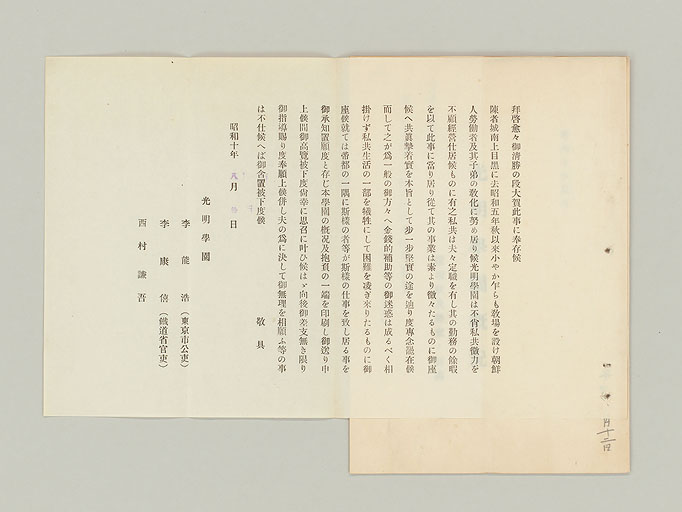 拜啓愈々御淸勝の段大賀此事に奉存候
陳者城南上目黑に去昭和五年秋以來小やか乍らも敎場を設け朝鮮
人勞働者及其子弟の敎化に努め居り候光明學園は不肖私共微力を
不顧經營仕居候ものに有之私共は夫々定職を有し其の勤務の餘暇
を以て此事に當り居り從て其の事業は素より微々たるものに御座
候へ共眞摯着實を本旨として步一步堅實の途を辿り度專念罷在候
而して之が爲一般の御方々へ金錢的補助等の御迷惑は成るべく相
掛けず私共生活の一部を犧牲にして困難を凌ぎ來りたるものに御
座候就ては帝都の一隅に斯樣の者等が斯樣の仕事を致し居る事を
御承知置願度と存じ本學園の槪況及抱負の一端を印刷し御送り申
上候間御高覽被下度尙幸に思召に叶ひ候はゞ向後御差支無き限り
御指導賜り度奉願上候併し夫の爲に決して御無理を相願ふ等の事
は不仕候へば御含置被下度候
敬具
昭和十年 八月 日
光明學園
李能浩（東京市公吏）
李康信（鐵道省官吏）
西村謙吾